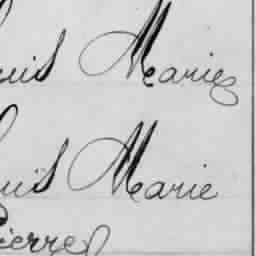 uis Marie
uis Marie
ierre